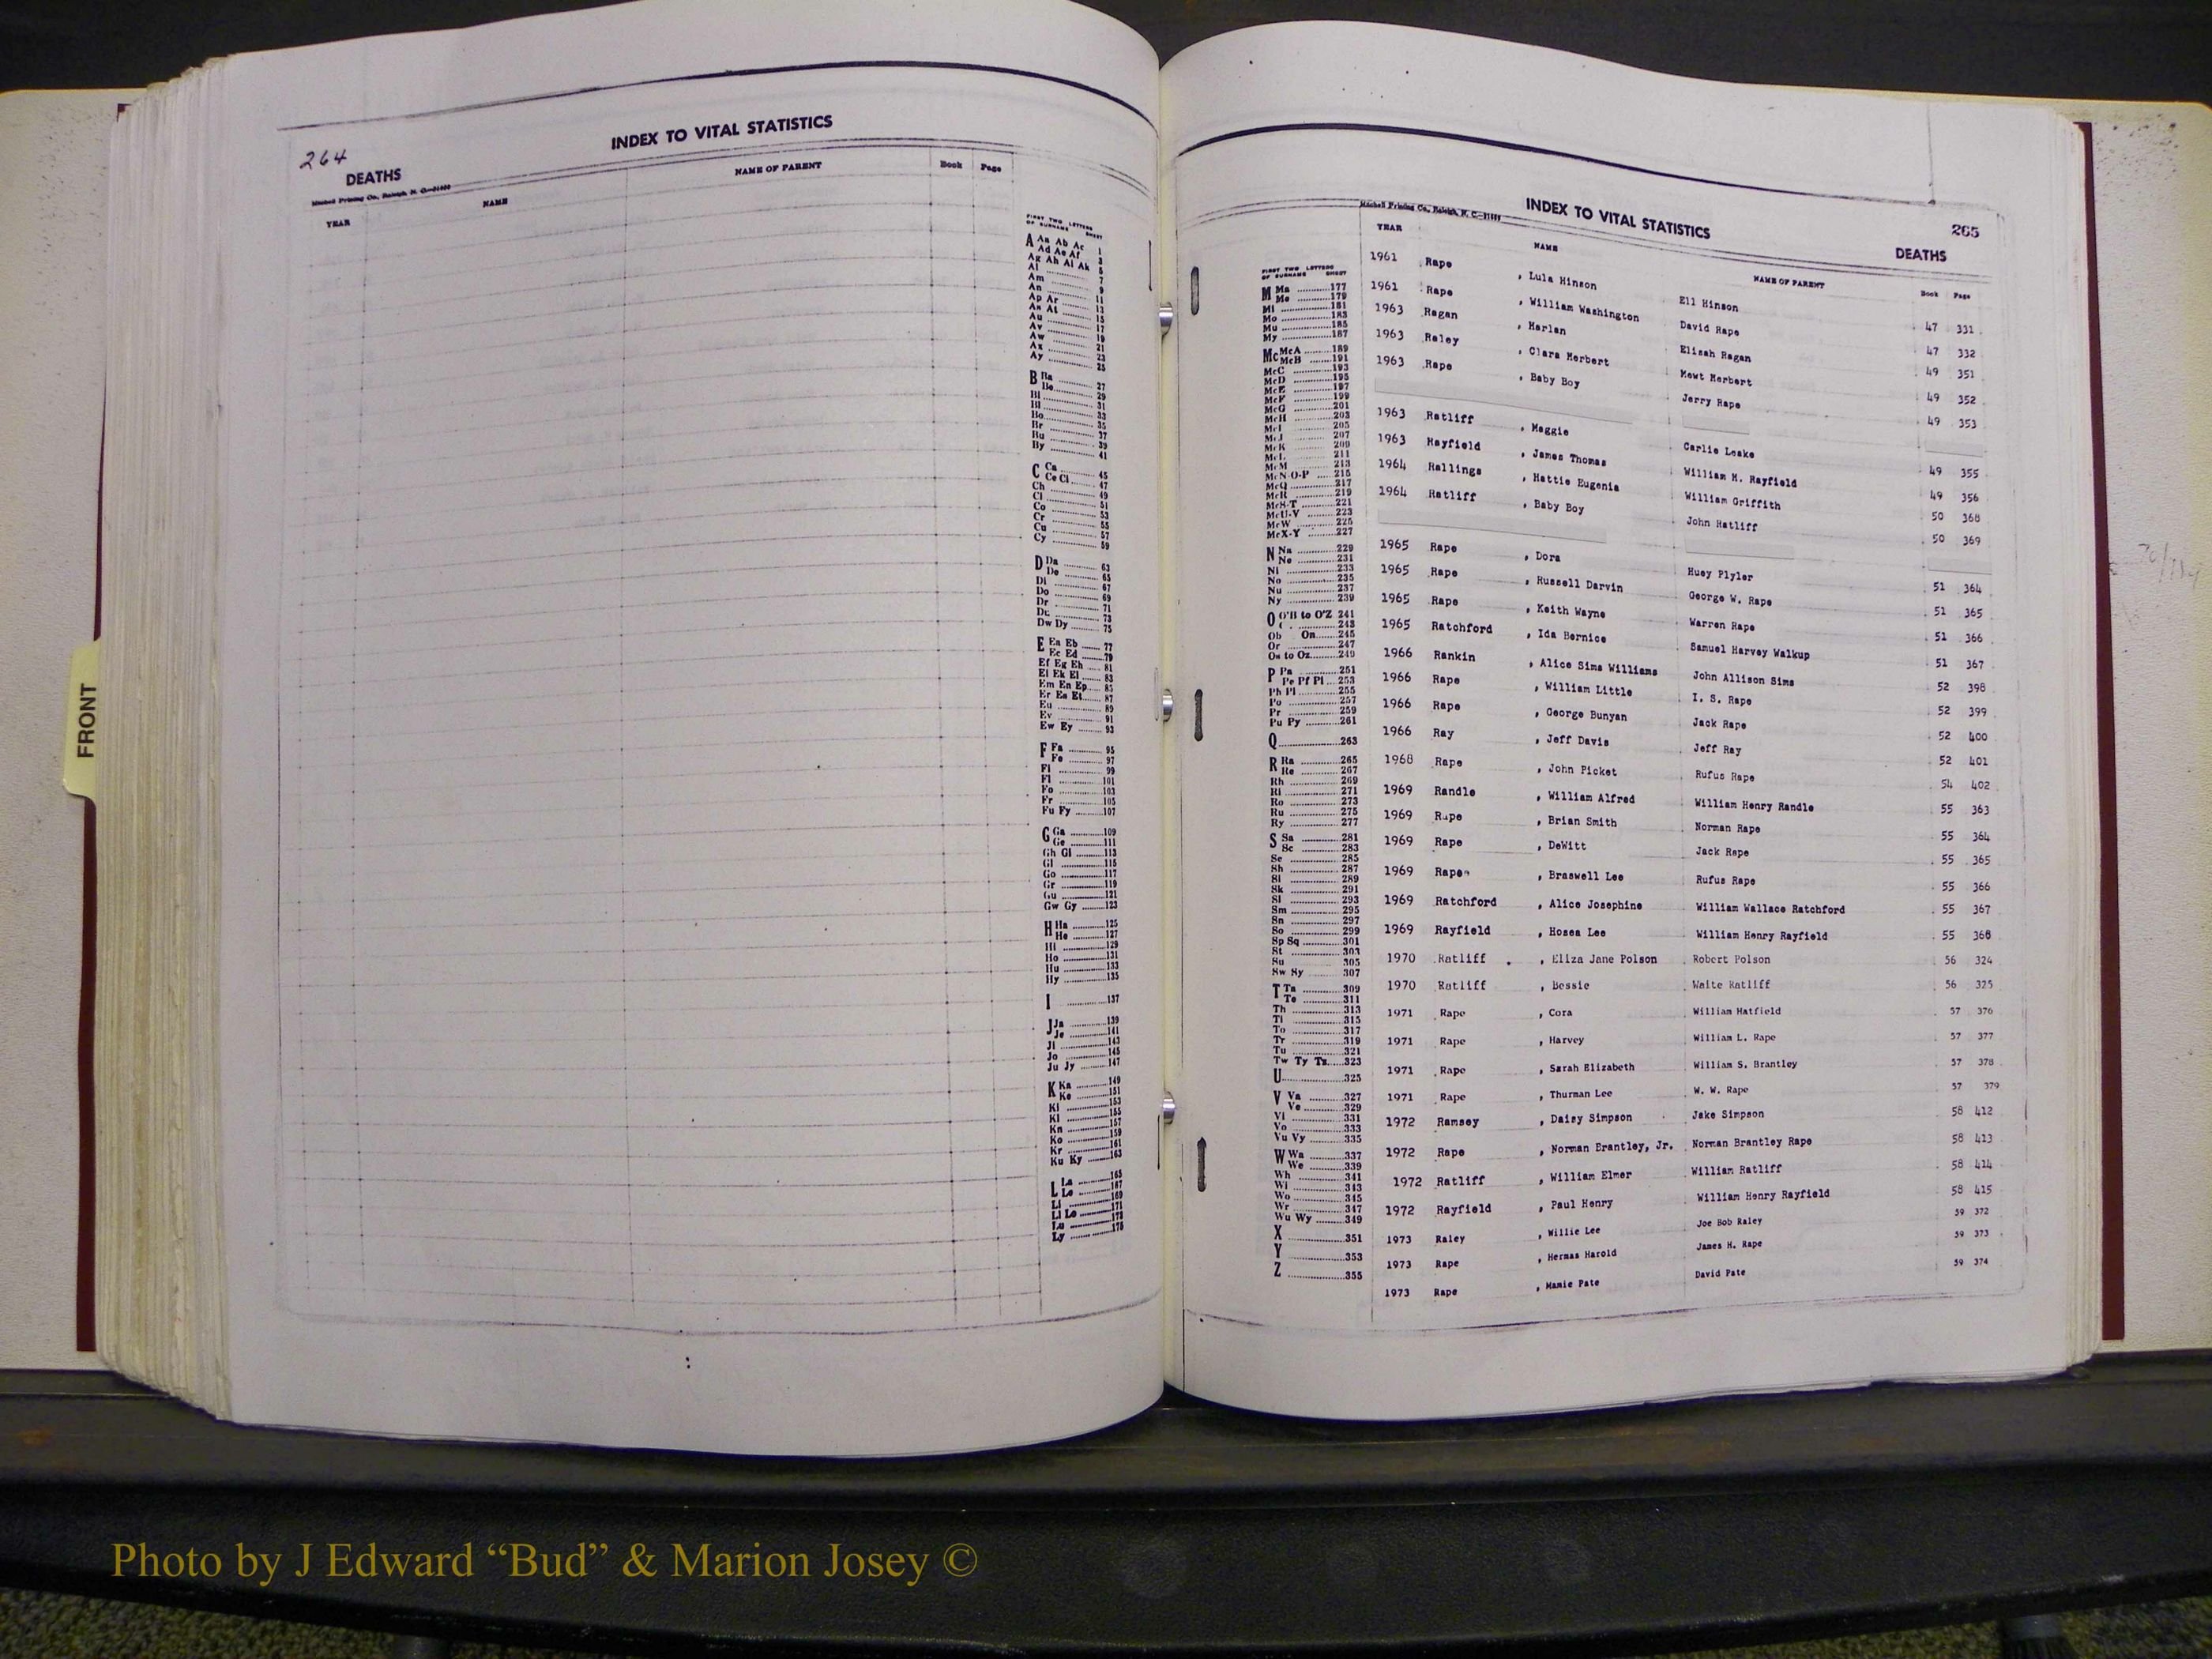 264
INDEX TO VITAL STATISTICS
DEATHS
Mitchell Printing Co., Raleigh, N. C.
YEAR NAME NAME OF PARENT Book Page
FIRST TWO LETTERS OF SURNAME SHEET
A Aa Ab Ac 1
Ad Ae Af 3
Ag Ah Ai Ak 5
Al 7
Am 9
An 11
Ap Ar 13
As At 15
Au 17
Av 19
Aw 21
Ax 23
Ay 25
B Ba 27
Be 29
Bi 31
Bl 33
Bo 35
Br 37
Bu 39
By 41
C Ca 45
Ce Ci 47
Ch 49
Cl 51
Co 53
Cr 55
Cu 57
Cy 59
D Da 63
De 65
Di 67
Do 69
Dr 71
Du 73
Dw Dy 75
E Ea Eb 77
Ec Ed 79
Ef Eg Eh 81
Ei Ek El 83
Em En Ep 85
Er Es Et 87
Eu 89
Ev 91
Ew Ey 93
F Fa 95
Fe 97
Fi 99
Fl 101
Fo 103
Fr 105
Fu Fy 107
G Ga 109
Ge 111
Gh Gi 113
Gl 115
Go 117
Gr 119
Gu 121
Gw Gy 123
H Ha 125
He 127
Hi 129
Ho 131
Hu 133
Hy 135
I 137
J Ja 139
Je 141
Ji 143
Jo 145
Ju Jy 147
K Ka 149
Ke 151
Ki 153
Kl 155
Kn 157
Ko 159
Kr 161
Ku Ky 163
L La 165
Le 167
Li 169
Ll Lo 171
Lu 173
Ly 175
INDEX TO VITAL STATISTICS
265
DEATHS
Mitchell Printing Co., Raleigh, N. C.
YEAR NAME NAME OF PARENT Book Page
FIRST TWO LETTERS OF SURNAME SHEET
M Ma 177
Me 179
Mi 181
Mo 183
Mu 185
My 187
Mc McA 189
McB 191
McC 193
McD 195
McE 197
McF 199
McG 201
McH 203
McI 205
McJ 207
McK 209
McL 211
McM 213
McN-O-P 215
McQ 217
McR 219
McS-T 221
McU-V 223
McW 225
McX-Y 227
N Na 229
Ne 231
Ni 233
No 235
Nu 237
Ny 239
O O'B to O'Z 241
243
Ob On 245
Or 247
Os to Oz 249
P Pa 251
Pe Pf Pl 253
Ph Pi 255
Po 257
Pr 259
Pu Py 261
Q 263
R Ra 265
Re 267
Rh 269
Ri 271
Ro 273
Ru 275
Ry 277
S Sa 281
Sc 283
Se 285
Sh 287
Si 289
Sk 291
Sl 293
Sm 295
Sn 297
So 299
Sp Sq 301
St 303
Su 305
Sw Sy 307
T Ta 309
Te 311
Th 313
Ti 315
To 317
Tr 319
Tu 321
Tw Ty Tz 323
U 325
V Va 327
Ve 329
Vi 331
Vo 333
Vu Vy 335
W Wa 337
We 339
Wh 341
Wi 343
Wo 345
Wr 347
Wu Wy 349
X 351
Y 353
Z 355
1961 Rape , Lula Hinson Ell Hinson 47 331
1961 Rape , William Washington David Rape 47 332
1963 Ragan , Harlan Elisah Ragan 49 351
1963 Raley , Clara Herbert Hewt Herbert 49 352
1963 Rape , Baby Boy Jerry Rape 49 353
1963 Ratliff , Maggie Carlie Leake 49 355
1963 Rayfield , James Thomas William M. Rayfield 49 356
1964 Rallings , Hattie Eugenia William Griffith 50 368
1964 Ratliff , Baby Boy John Ratliff 50 369
1965 Rape , Dora Huey Plyler 51 364
1965 Rape , Russell Darvin George W. Rape 51 365
1965 Rape , Keith Wayne Warren Rape 51 366
1965 Ratchford , Ida Bernice Samuel Harvey Walkup 51 367
1966 Rankin , Alice Sims Williams John Allison Sims 52 398
1966 Rape , William Little I. S. Rape 52 399
1966 Rape , George Bunyan Jack Rape 52 400
1966 Ray , Jeff Davis Jeff Ray 52 401
1968 Rape , John Picket Rufus Rape 54 402
1969 Randle , William Alfred William Henry Randle 55 363
1969 Rape , Brian Smith Norman Rape 55 364
1969 Rape , DeWitt Jack Rape 55 365
1969 Rape , Braswell Lee Rufus Rape 55 366
1969 Ratchford , Alice Josephine William Wallace Ratchford 55 367
1969 Rayfield , Hosea Lee William Henry Rayfield 55 368
1970 Ratliff , Eliza Jane Polson Robert Polson 56 324
1970 Ratliff , Bessie Waite Ratliff 56 325
1971 Rape , Cora William Hatfield 57 376
1971 Rape , Harvey William L. Rape 57 377
1971 Rape , Sarah Elizabeth William S. Brantley 57 378
1971 Rape , Thurman Lee W. W. Rape 57 379
1972 Ramsey , Daisy Simpson Jake Simpson 58 412
1972 Rape , Norman Brantley, Jr. Norman Brantley Rape 58 413
1972 Ratliff , William Elmer William Ratliff 58 414
1972 Rayfield , Paul Henry William Henry Rayfield 58 415
1973 Raley , Willie Lee Joe Bob Raley 59 372
1973 Rape , Hermas Harold James H. Rape 59 373
1973 Rape , Mamie Pate David Pate 59 374
FRONT
Photo by J Edward “Bud” & Marion Josey ©